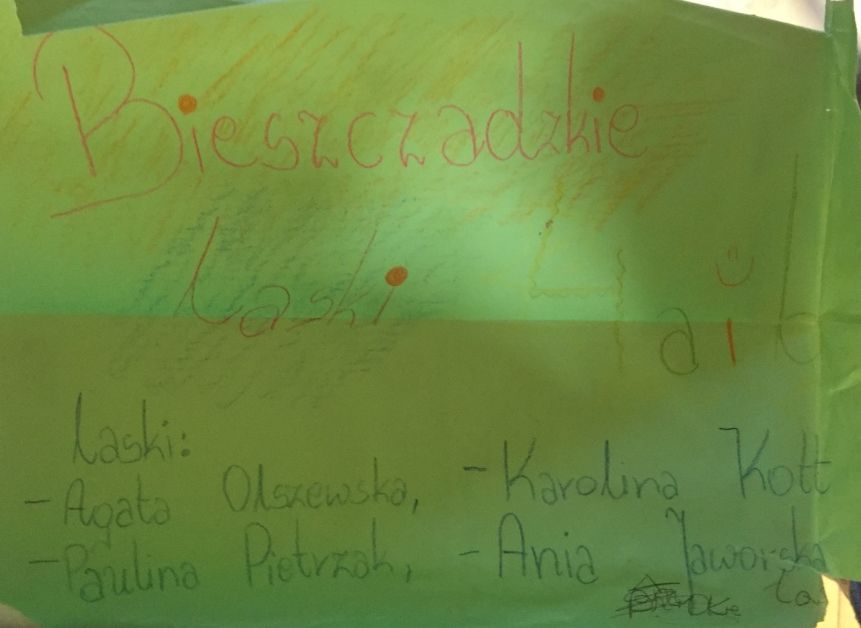 Bieszczadzkie
Laski 4 a i b
Laski:
- Agata Olszewska, - Karolina Kott
- Paulina Pietrzak, - Ania Jaworska